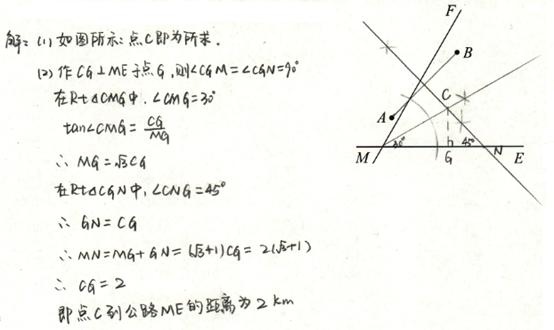 解：(1) 如图所示：点C即为所求．
(2) 作CG⊥ME于点G，则∠CGM=∠CGN=90°
在Rt△CMG中，∠CMG=30°
tan∠CMG=CG/MG
∴ MG=√3CG
在Rt△CGN中，∠CNG=45°
∴ GN=CG
∴ MN=MG+GN=(√3+1)CG=2(√3+1)
∴ CG=2
即点C到公路ME的距离为2km
F
B
C
A
45°
M
G
N
E